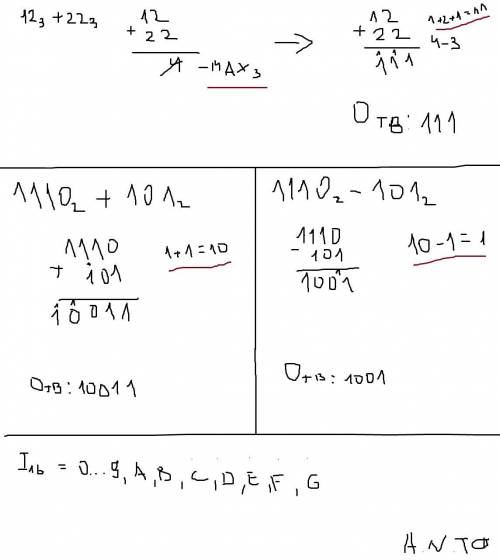 12₃ + 22₃
12
+ 22
4 - MAX₃
→
12
+ 22
111
1+2+1=11
4-3
Отв: 111
1110₂ + 101₂
1110
+ 101
10011
1+1=10
Отв: 10011
1110₂ - 101₂
1110
- 101
1001
10-1=1
Отв: 1001
I₁₆ = 0...9, A, B, C, D, E, F, G